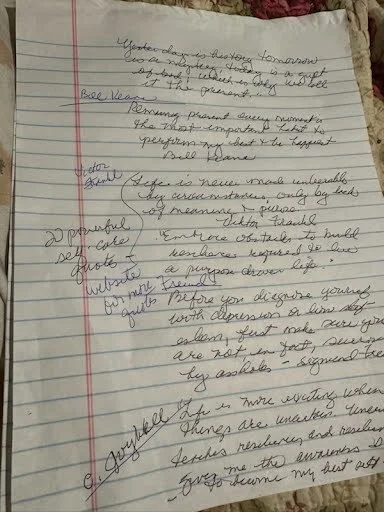 "Yesterday is history tomorrow
is a mystery today is a gift
of God, which is why we call
it the present."
Bill Keane
Remaing present every moment is
the most important habit to
perform my best & be happiest
Bill Keane
Victor
Frankl
Life is never made unbearable
by circumstances, only by lack
of meaning & purpose
Viktor Frankl
20 powerful
self care
quotes -
website
for more Freund
quotes
"Embrace obstacles to build
resilience required to live
a purpose driven life."
Before you diagnose yourself
with depression or low self
esteem, first make sure you
are not, in fact, surrou
by assholes - Sigmund Fre
C. Joybell
Life is more exciting when
things are uncertain
teaches resiliency and
gives me the awareness
to become my best self